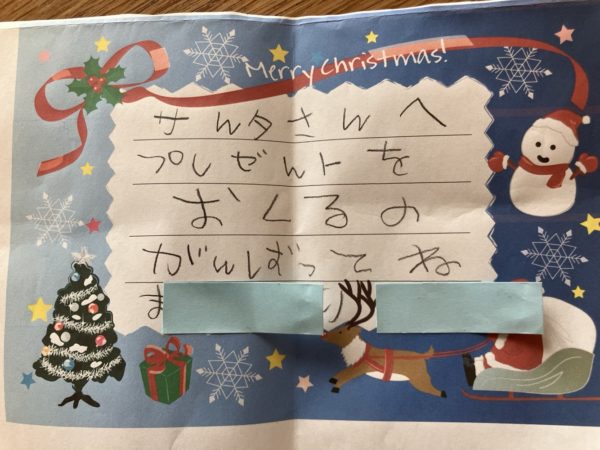 Merry Christmas!
サんタさんへ
プレぜんトを
おくるの
がんばってね